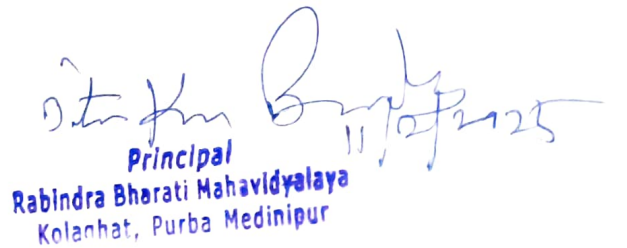 11/2/2025
Principal
Rabindra Bharati Mahavidyalaya
Kolaghat, Purba Medinipur